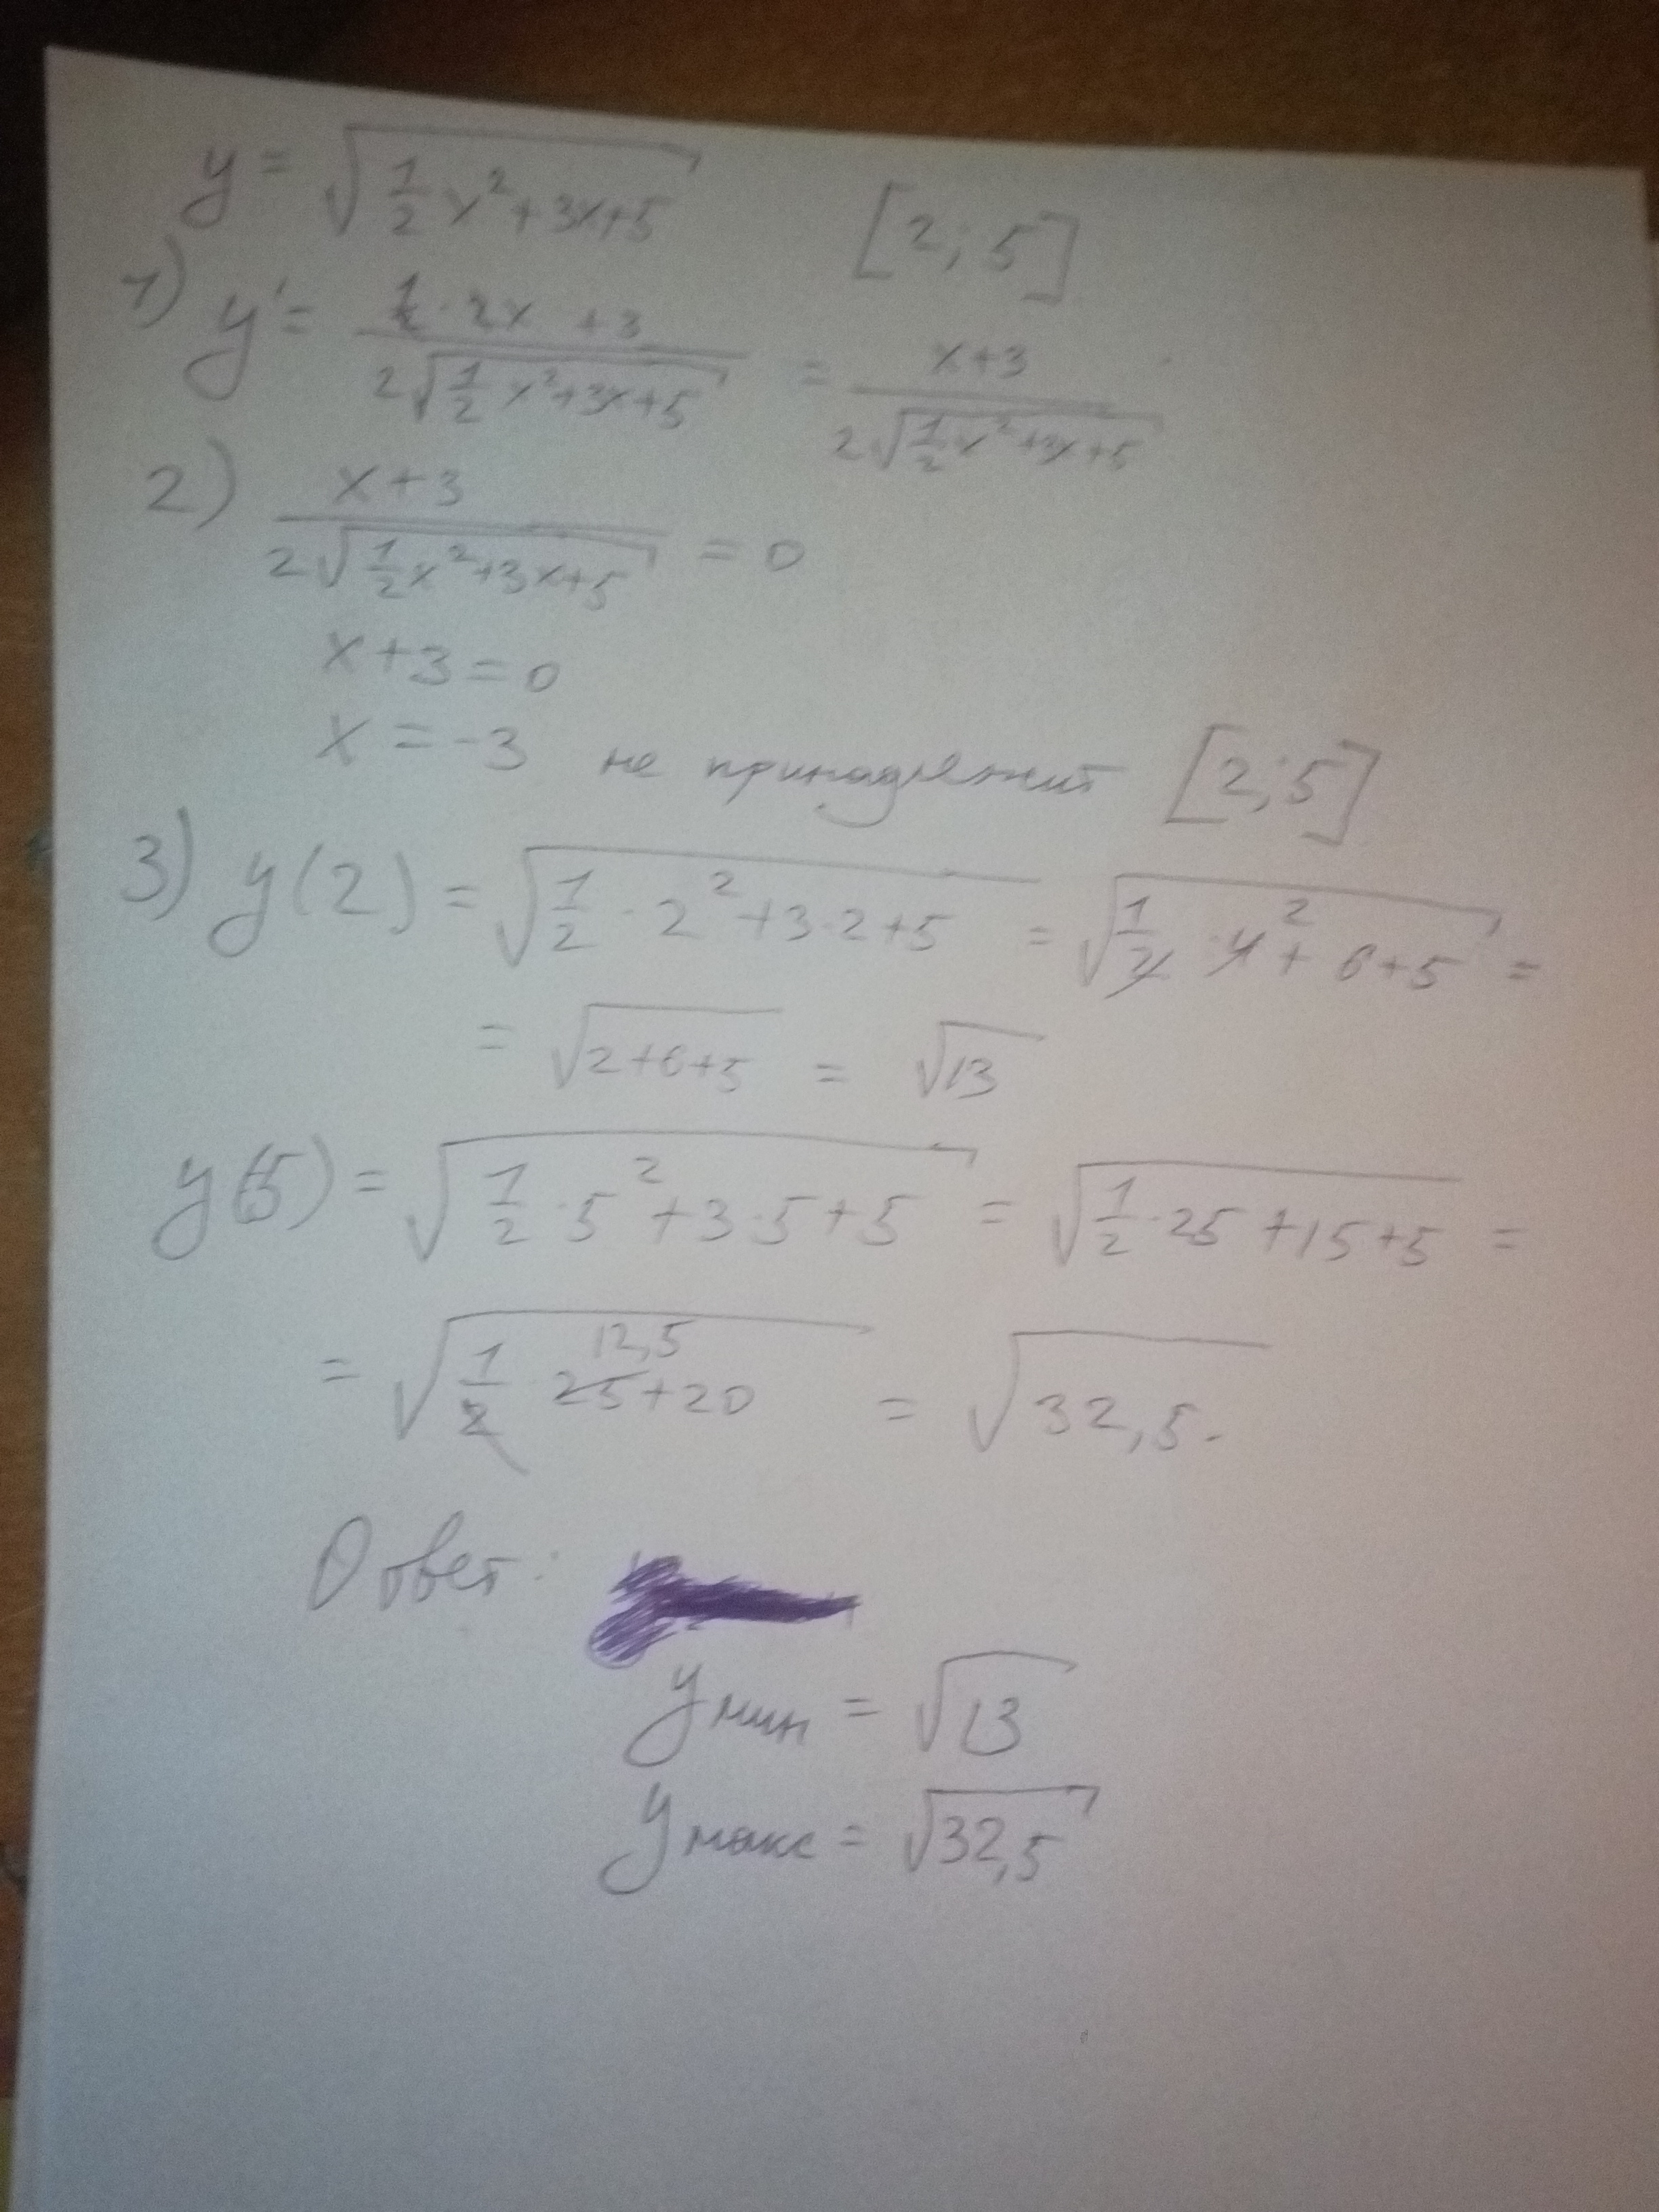 y = √(1/2 x² + 3x + 5) [2; 5]
1) y' = (1/2 · 2x + 3)/(2√(1/2 x² + 3x + 5)) = (x + 3)/(2√(1/2 x² + 3x + 5))
2) (x + 3)/(2√(1/2 x² + 3x + 5)) = 0
x + 3 = 0
x = -3 не принадлежит [2; 5]
3) y(2) = √(1/2 · 2² + 3 · 2 + 5) = √(1/2 · 4² + 6 + 5) =
= √(2 + 6 + 5) = √13
y(5) = √(1/2 · 5² + 3 · 5 + 5) = √(1/2 · 25 + 15 + 5) =
12,5
= √(1/2 · 25 + 20) = √32,5.
Ответ:
y мин = √13
y макс = √32,5